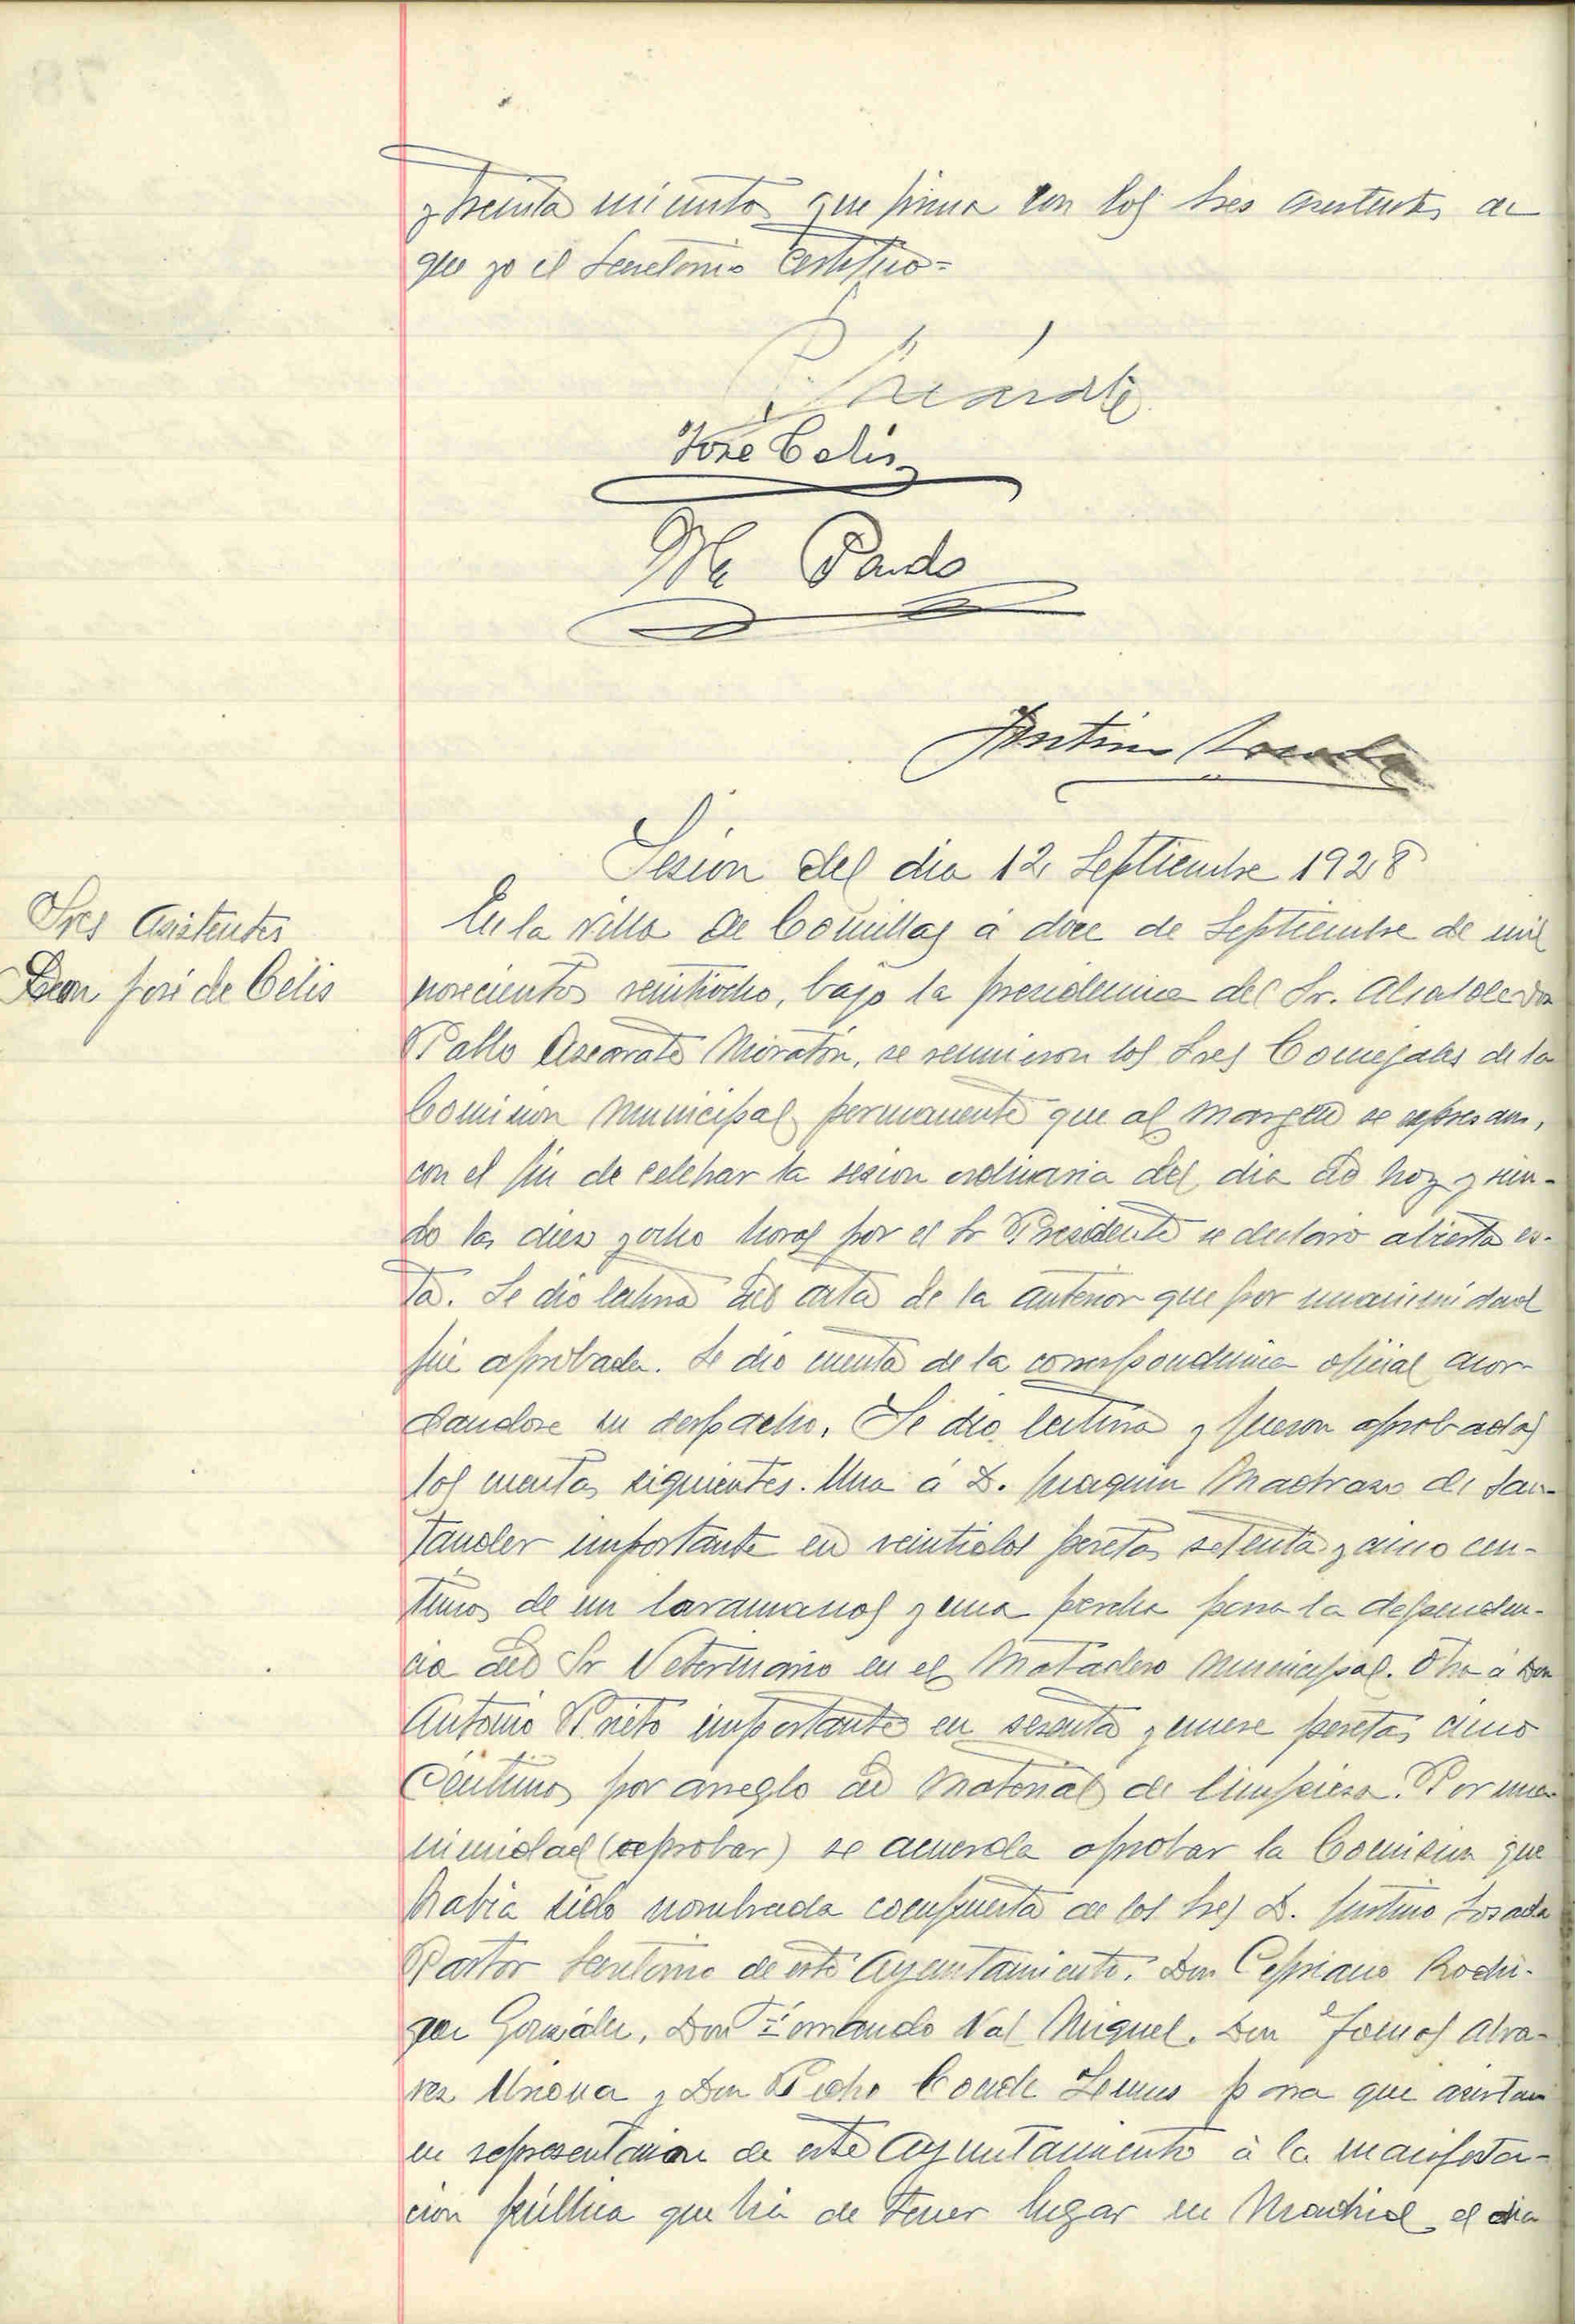 y treinta minutos que firma con los Sres asistentes de
que yo el Secretario Certifico=
P. Azcarate
Jose Celis
M Pardo
Justino Losada
Sesion del dia 12 Septiembre 1928
Sres Asistentes
Don José de Célis
En la villa de Comillas á doce de Septiembre de mil
novecientos veintiocho, bajo la presidencia del Sr. Alcalde Don
Pablo Ascarate Moratón, se reunieron los Sres Concejales de la
Comision Municipal permanente que al margen se expresan,
con el fin de celebrar la sesion ordinaria del dia de hoy y sien-
do las diez y ocho horas por el Sr Presidente se declaro abierta es-
ta. Se dió lectura del acta de la anterior que por unanimidad
fué aprobada. Se dió cuenta de la correspondencia oficial acor-
dandose su despacho. Se dio lectura y fueron aprobadas
las cuentas siguientes. Una á D. Joaquin Madrazo de San-
tander importante en veintidos pesetas setenta y cinco cen-
timos de un lavamanos y una percha para la dependen-
cia del Sr Veterinario en el Matadero Municipal. Otra á Don
Antonio Prieto importante en sesenta y nueve pesetas cinco
Céntimos por arreglo de Material de limpieza. Por una-
nimidad (aprobar) se acuerda aprobar la Comision que
habia sido nombrada compuesta de los Sres D. Justino Losada
Pastor Secretario de este Ayuntamiento. Don Cipriano Rodri-
guez González, Don Fernando Val Miguel. Don Tomas Alva-
rez y Don Pedro Conde Lemus para que asistan
en representacion de este Ayuntamiento à la manifesta-
cion pública que há de tener lugar en Madrid el dia